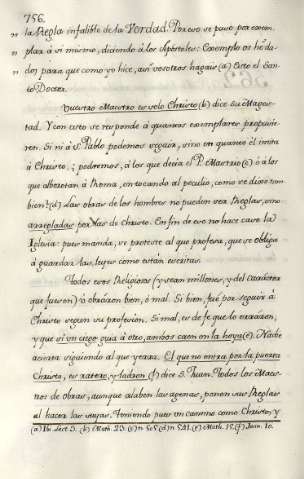 756.
" la Regla infalible de la Verdad. Por eso se puso por exem-
" plar à si mismo, diciendo à los Apóstoles: Exemplo os hè da-
" do; para que como yo hice, assi vosotros hagais (a) Esto el San-
to Doctor.
Vuestro Maestro es solo Christo (b) dice su Mages-
tad. Y con esto se responde à quantos exemplares propusie-
ren. Si ni à S. Pablo podemos seguir, sino en quanto el imita
à Christo, podremos, à los que decia el P. Maestro (c) ò à los
que à Roma, en tocando al peculio, como se dixo tam-
bien? (d) Las obras de los hombres no pueden ser Reglas, sino
arregladas por las de Christo. En fin de eso no hace caso la
Iglesia: pues manda, se proteste al que profesa, que se obliga
à guardar las leyes como están escritas.
Todos esos Religiosos (y sean millones, y del caracter
que fueren) ò obráron bien, ò mal. Si bien, fué por seguir à
Christo segun su profesion. Si mal, es de fe que lo erráron,
y que si un ciego guia à otro, ambos caen en la hoya (e). Nadie
acierta siguiendo al que yerra. El que no entra por la puerta
Christo, es ratero, y ladron (f) dice S. Juan. Todos los Maes-
tros de obras, aunque alaben las agenas, ponen sus Reglas
al hacer las suyas. Teniendo pues un camino como Christo, y
(a) Ibi. Sect. 3. (b) Math. 23. (c) n 505 (d) n 521. (e) Math. 15. (f) Joan. 10.